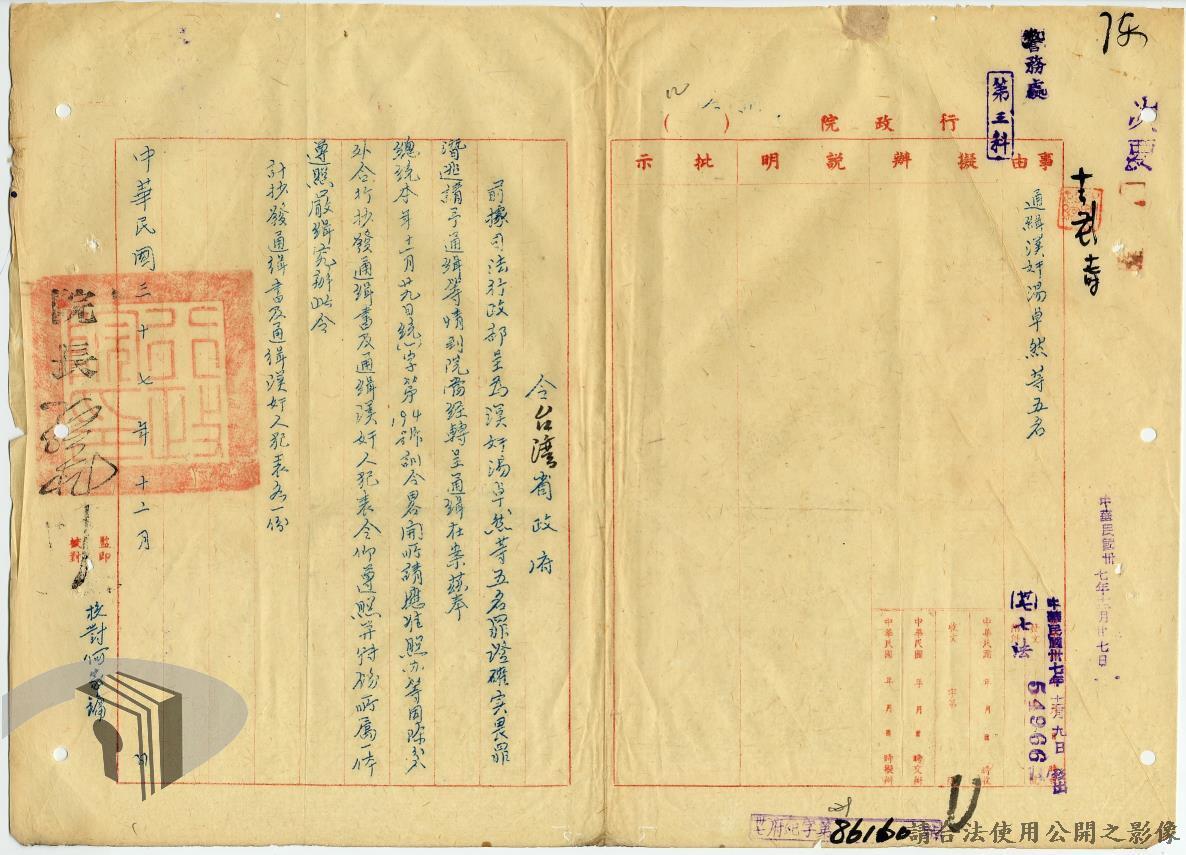 警務處
第三科
行政院
(　)
事由
擬辦
說明
批示
通緝漢奸湯卓然等五名
中華民國卅七年十二月十七日
中華民國卅七年十二月九日發出
(卅七)七法
54966
收文
字第
中華民國　年　月　日　時收
中華民國　年　月　日　時交辦
中華民國　年　月　日　時擬辦
86160
令台灣省政府
前據司法行政部呈為漢奸湯卓然等五名罪證確實畏罪
潛逃請予通緝等情到院當經轉呈通緝在案茲奉
總統本年十一月廿九日統字第194號訓令畧開所請應准照办等因除分
外合行抄發通緝書及通緝漢奸人犯表令仰遵照并轉飭所屬一体
遵照嚴緝究辦此令
計抄發通緝書及通緝漢奸人犯表各一份
院長
中華民國三十七年十二月　日
監印
校對
校對何
請合法使用公開之影像